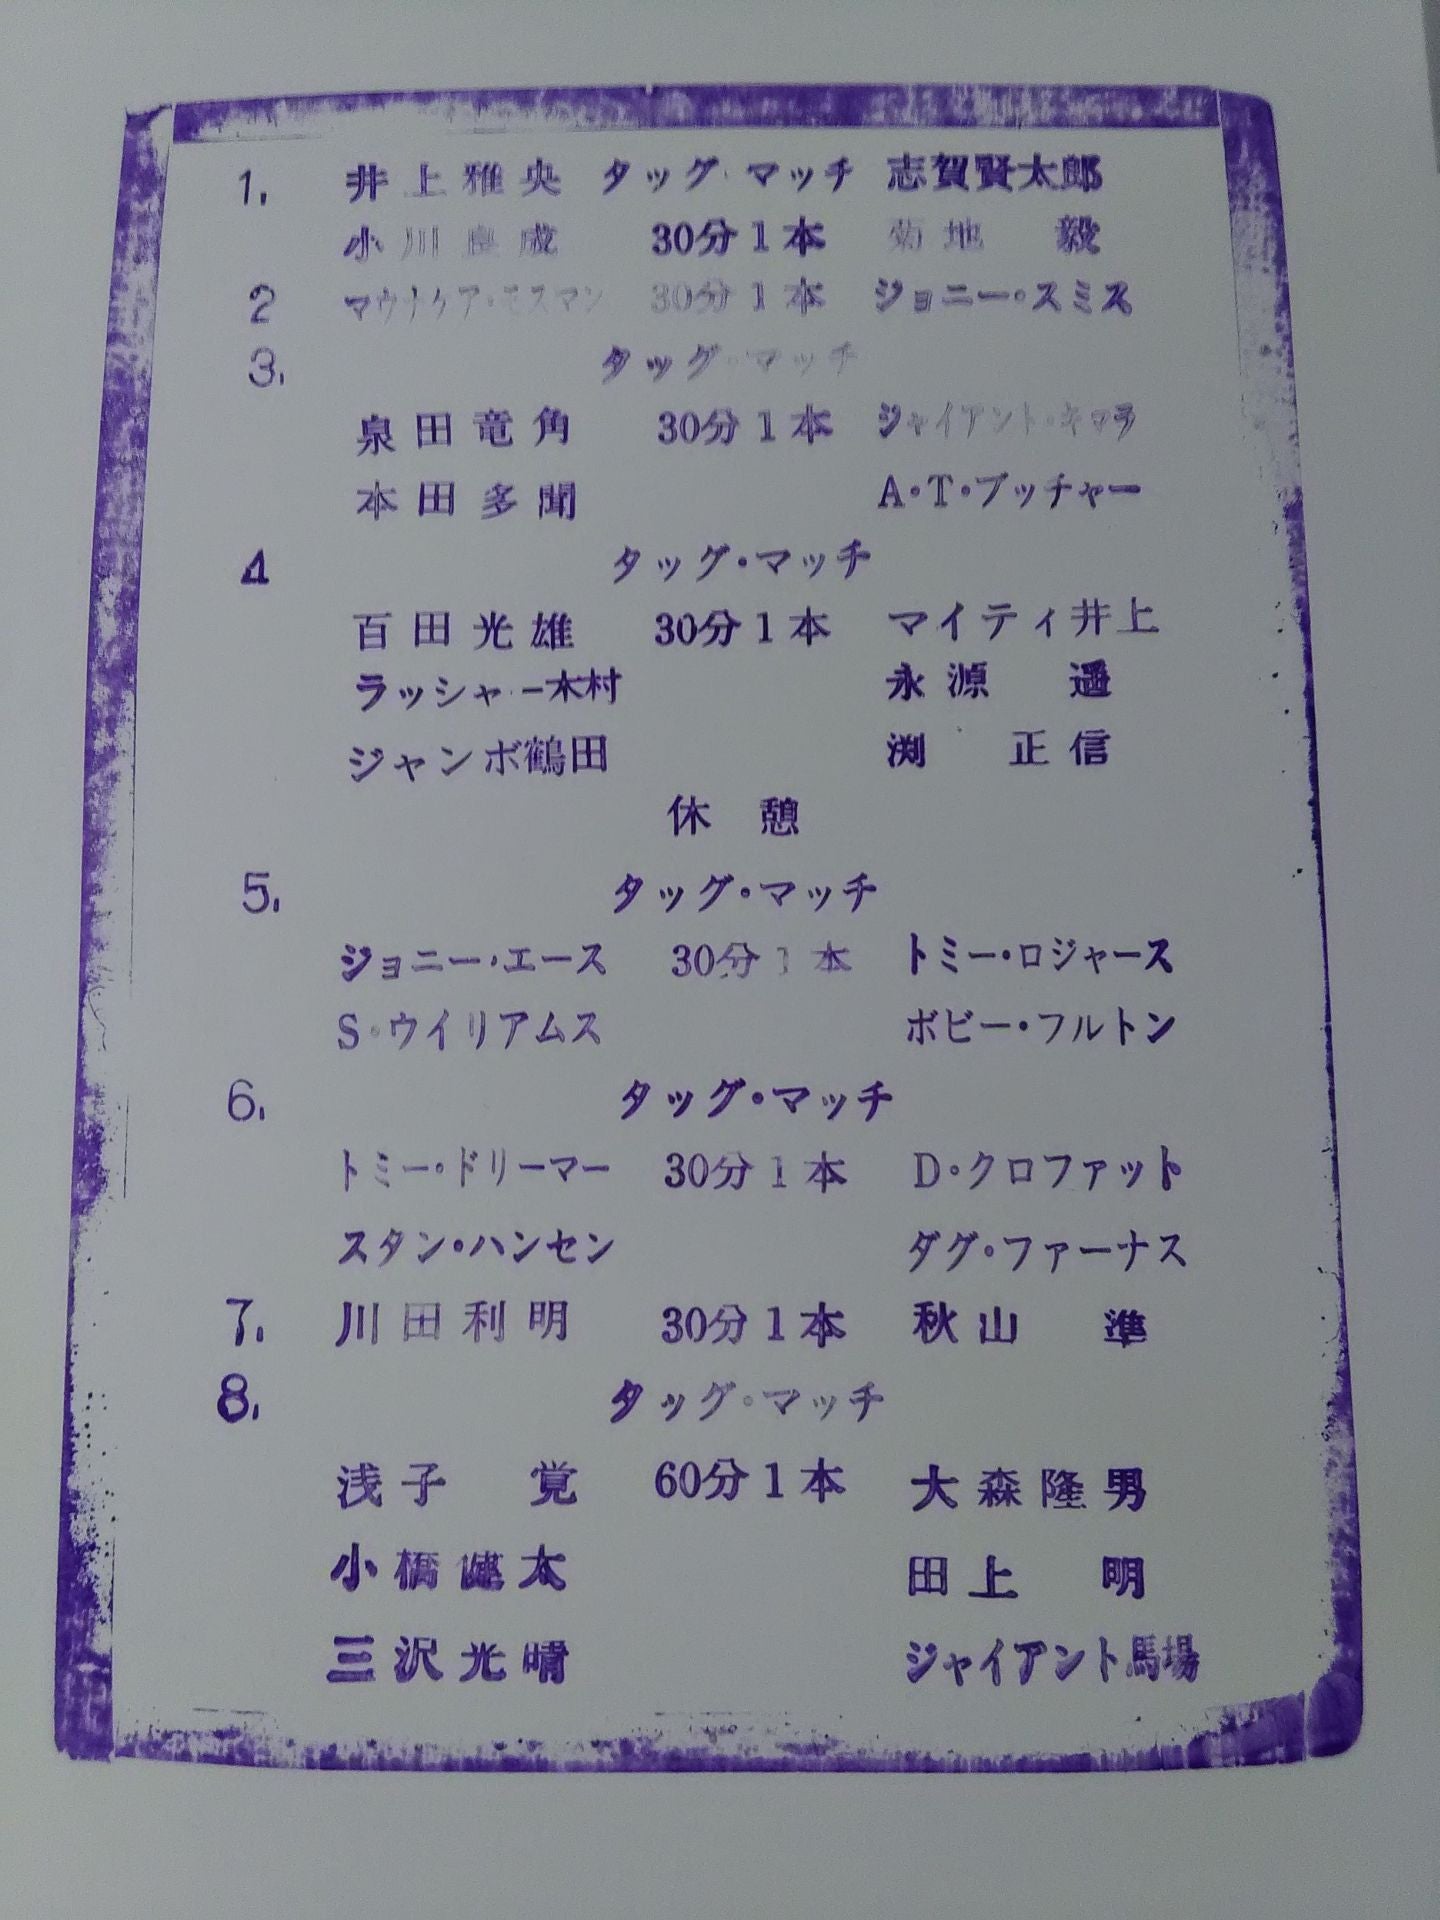 1. 井上雅央 タッグ・マッチ 志賀賢太郎
小川良成 30分1本 菊地 毅
2 マウナケア・モスマン 30分1本 ジョニー・スミス
3. タッグ・マッチ
泉田竜角 30分1本 ジャイアント・キマラ
本田多聞 A・T・ブッチャー
4 タッグ・マッチ
百田光雄 30分1本 マイティ井上
ラッシャー木村 永源 遥
ジャンボ鶴田 渕 正信
休憩
5. タッグ・マッチ
ジョニー・エース 30分1本 トミー・ロジャース
S・ウイリアムス ボビー・フルトン
6. タッグ・マッチ
トミー・ドリーマー 30分1本 D・クロファット
スタン・ハンセン ダグ・ファーナス
7. 川田利明 30分1本 秋山 準
8. タッグ・マッチ
浅子 覚 60分1本 大森隆男
小橋健太 田上 明
三沢光晴 ジャイアント馬場